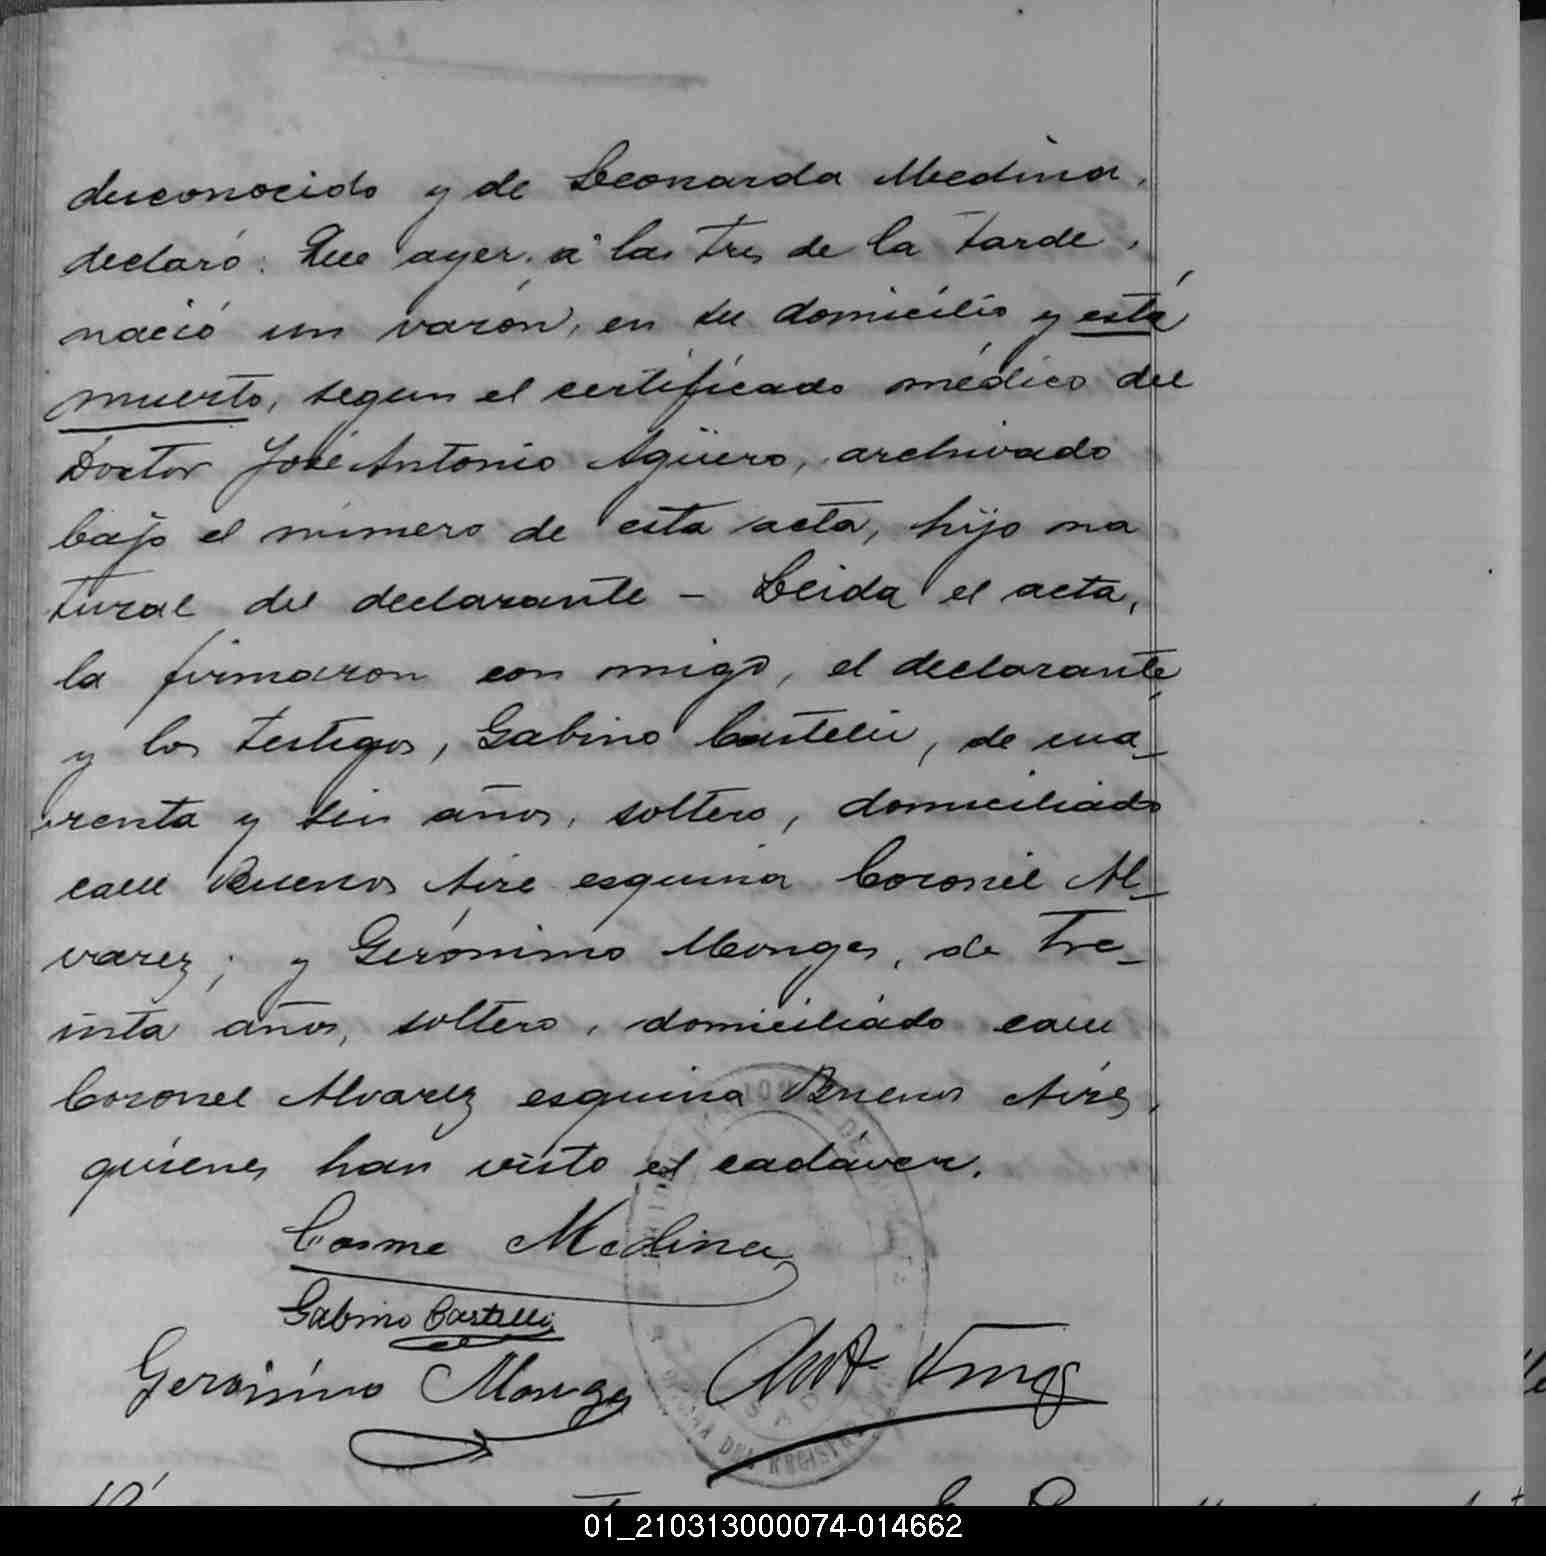 desconocido y de Leonarda Medina,
declaró: Que ayer, a las tres de la tarde,
nació un varón, en su domicilio y está
muerto, segun el certificado médico del
Doctor José Antonio Agüero, archivado
bajo el número de esta acta, hijo na
tural del declarante – Leida el acta,
la firmaron con migo, el declarante
y los testigos, Gabino Castelli, de cua-
renta y seis años, soltero, domiciliado
calle Buenos Aires esquina Coronel Al-
varez; y Gerónimo Monges, de tre-
inta años, soltero, domiciliado calle
Coronel Alvarez esquina Buenos Aires,
quienes han visto el cadáver.
Cosme Medina
Gabino Castelli
Gerónimo Monges
01_210313000074-014662